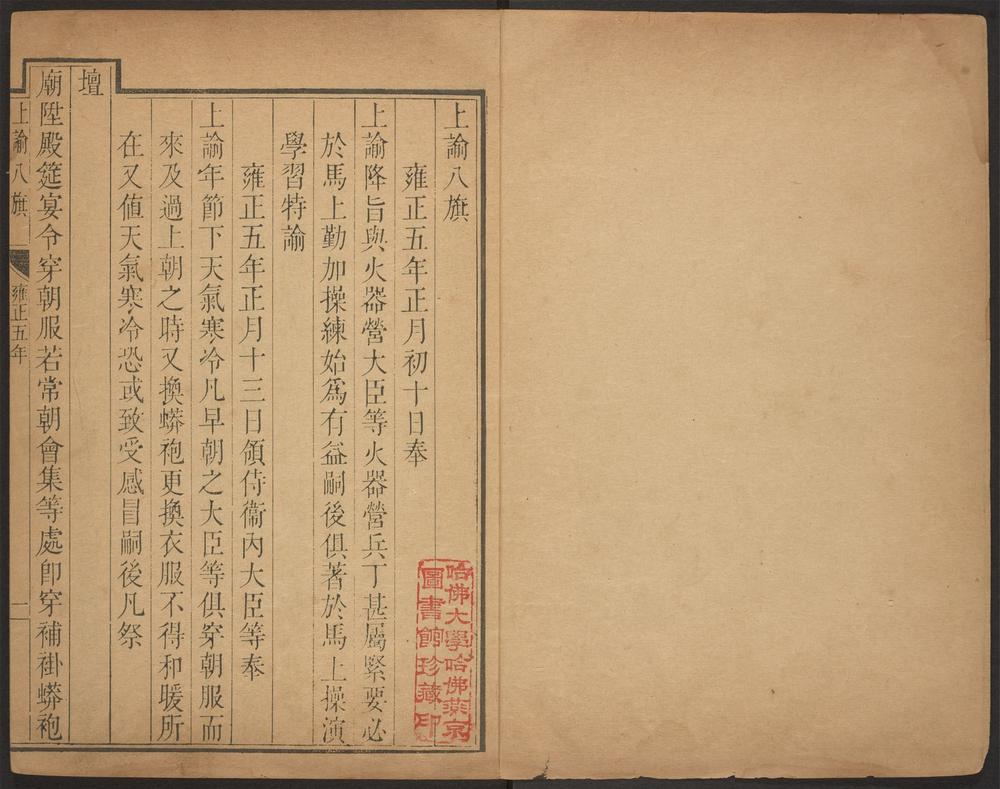 上諭八旗
雍正五年正月初十日奉
上諭降旨與火器營大臣等火器營兵丁甚屬緊要必
於馬上勤加操練始為有益嗣後俱著於馬上操演
學習特諭
雍正五年正月十三日領侍衞內大臣等奉
上諭年節下天氣寒冷凡早朝之大臣等俱穿朝服而
來及過上朝之時又換蟒袍更換衣服不得和暖所
在又值天氣寒冷恐或致受感冒嗣後凡祭
壇
廟陞殿筵宴令穿朝服若常朝會集等處卽穿補褂蟒袍
上諭八旗
雍正五年
一
哈佛大學哈佛燕京
圖書館珍藏印